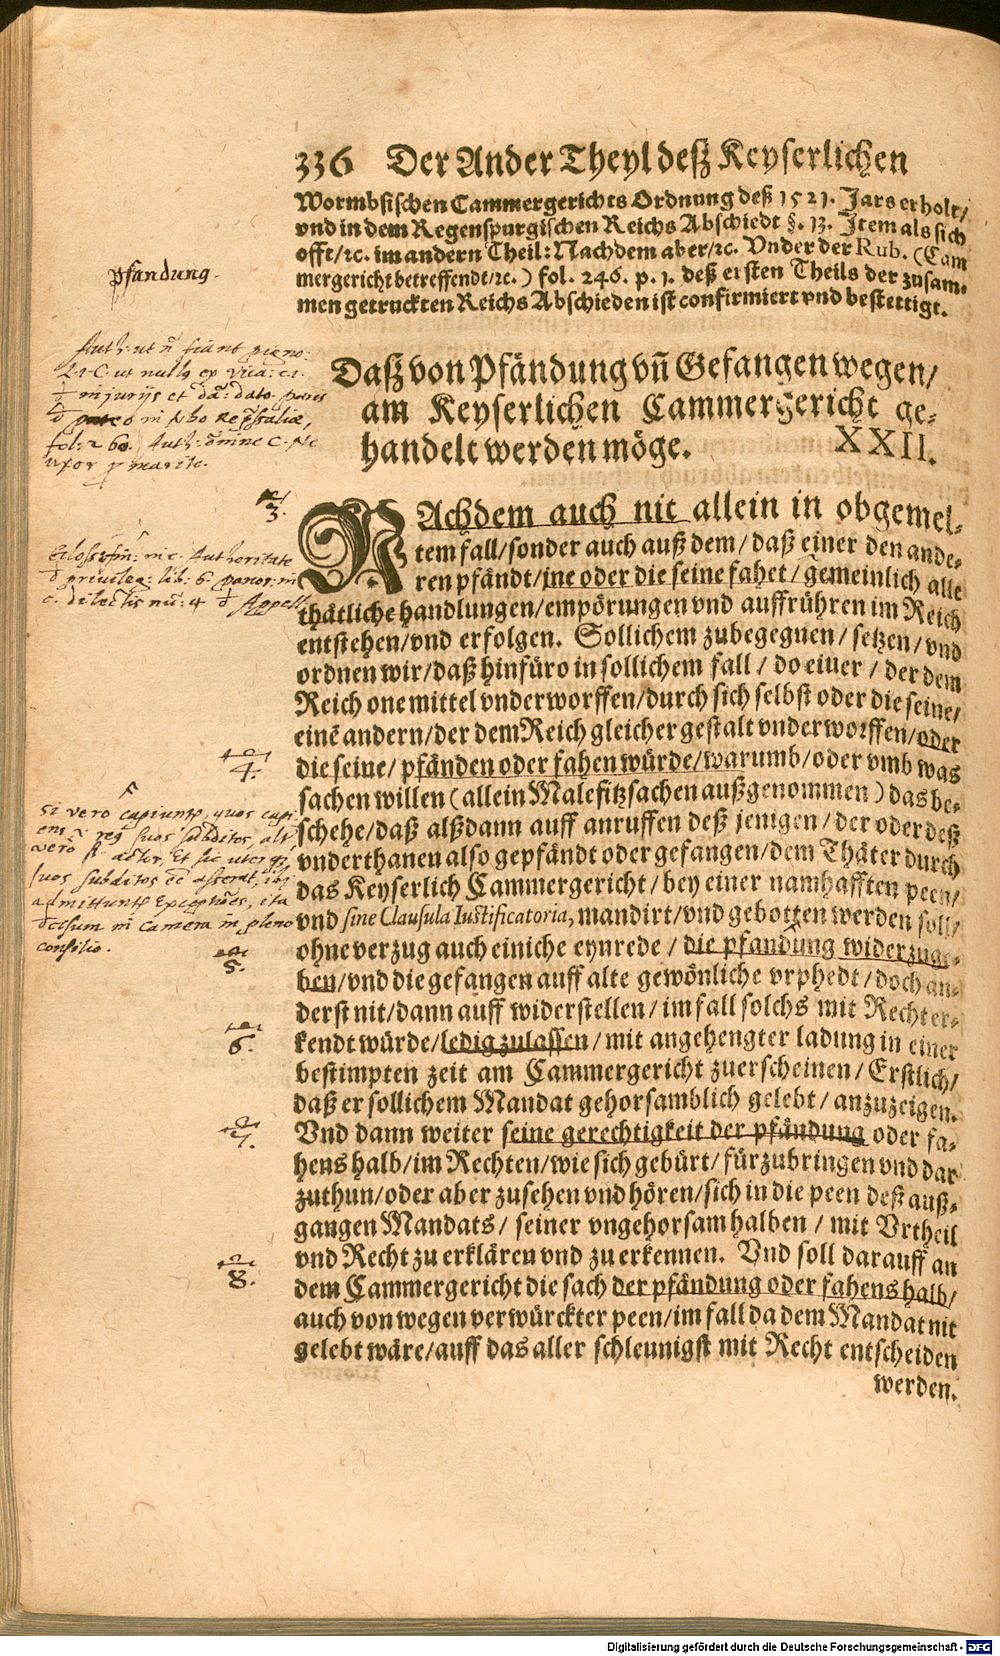 336 Der Ander Theyl deß Keyserlichen
Wormbsischen Cammergerichts Ordnung deß 1521. Jars erholt/
vnd in dem Regenspurgischen Reichs Abschiedt §. 13. Item als sich
offt/ꝛc. im andern Theil: Nachdem aber/ꝛc. Vnder der Rub. (Cam
mergericht betreffendt/ꝛc.) fol. 246. p. 1. deß ersten Theils der zusam-
men getruckten Reichs Abschieden ist confirmiert vnd bestettigt.
pfandung.
Daß von Pfändung vñ Gefangen wegen/
am Keyserlichen Cammergericht ge-
handelt werden möge. XXII.
3.
NAchdem auch nit allein in obgemel-
tem fall/sonder auch auß dem/daß einer den ande-
ren pfändt/jne oder die seine fahet/gemeinlich alle
thätliche handlungen/empörungen vnd auffrühren im Reich
entstehen/vnd erfolgen. Sollichem zubegegnen/setzen/vnd
ordnen wir/daß hinfüro in sollichem fall/do einer/der dem
Reich one mittel vnderworffen/durch sich selbst oder die seine/
einē andern/der dem Reich gleicher gestalt vnderworffen/oder
4.
die seine/pfänden oder fahen würde/warumb/oder vmb was
sachen willen (allein Malefitzsachen außgenommen) das be-
schehe/daß alßdann auff anruffen deß jenigen/der oder deß
vnderthanen also gepfändt oder gefangen/dem Thäter durch
das Keyserlich Cammergericht/bey einer namhafften peen/
vnd sine Clausula Iustificatoria, mandirt/vnd gebotten werden soll/
ohne verzug auch einiche eynrede/die pfandung widerzuge-
5.
ben/vnd die gefangen auff alte gewönliche vrphedt/doch an-
derst nit/dann auff widerstellen/im fall solchs mit Recht er-
6.
kendt würde/ledig zulassen/mit angehengter ladung in einer
bestimpten zeit am Cammergericht zuerscheinen/Erstlich/
daß er sollichem Mandat gehorsamblich gelebt/anzuzeigen.
7.
Vnd dann weiter seine gerechtigkeit der pfändung oder fa-
hens halb/im Rechten/wie sich gebürt/fürzubringen vnd dar
zuthun/oder aber zusehen vnd hören/sich in die peen deß auß-
gangen Mandats/seiner vngehorsam halben/mit Vrtheil
vnd Recht zu erklären vnd zu erkennen. Vnd soll darauff an
8.
dem Cammergericht die sach der pfändung oder fahens halb/
auch von wegen verwürckter peen/im fall da dem Mandat nit
gelebt wäre/auff das aller schleunigst mit Recht entscheiden
werden.
si vero capiunt, quos capi
suos subditos
suos subditos
admittunt Exceptiões, ita
in Camera in pleno
consilio.
Digitalisierung gefördert durch die Deutsche Forschungsgemeinschaft - DFG